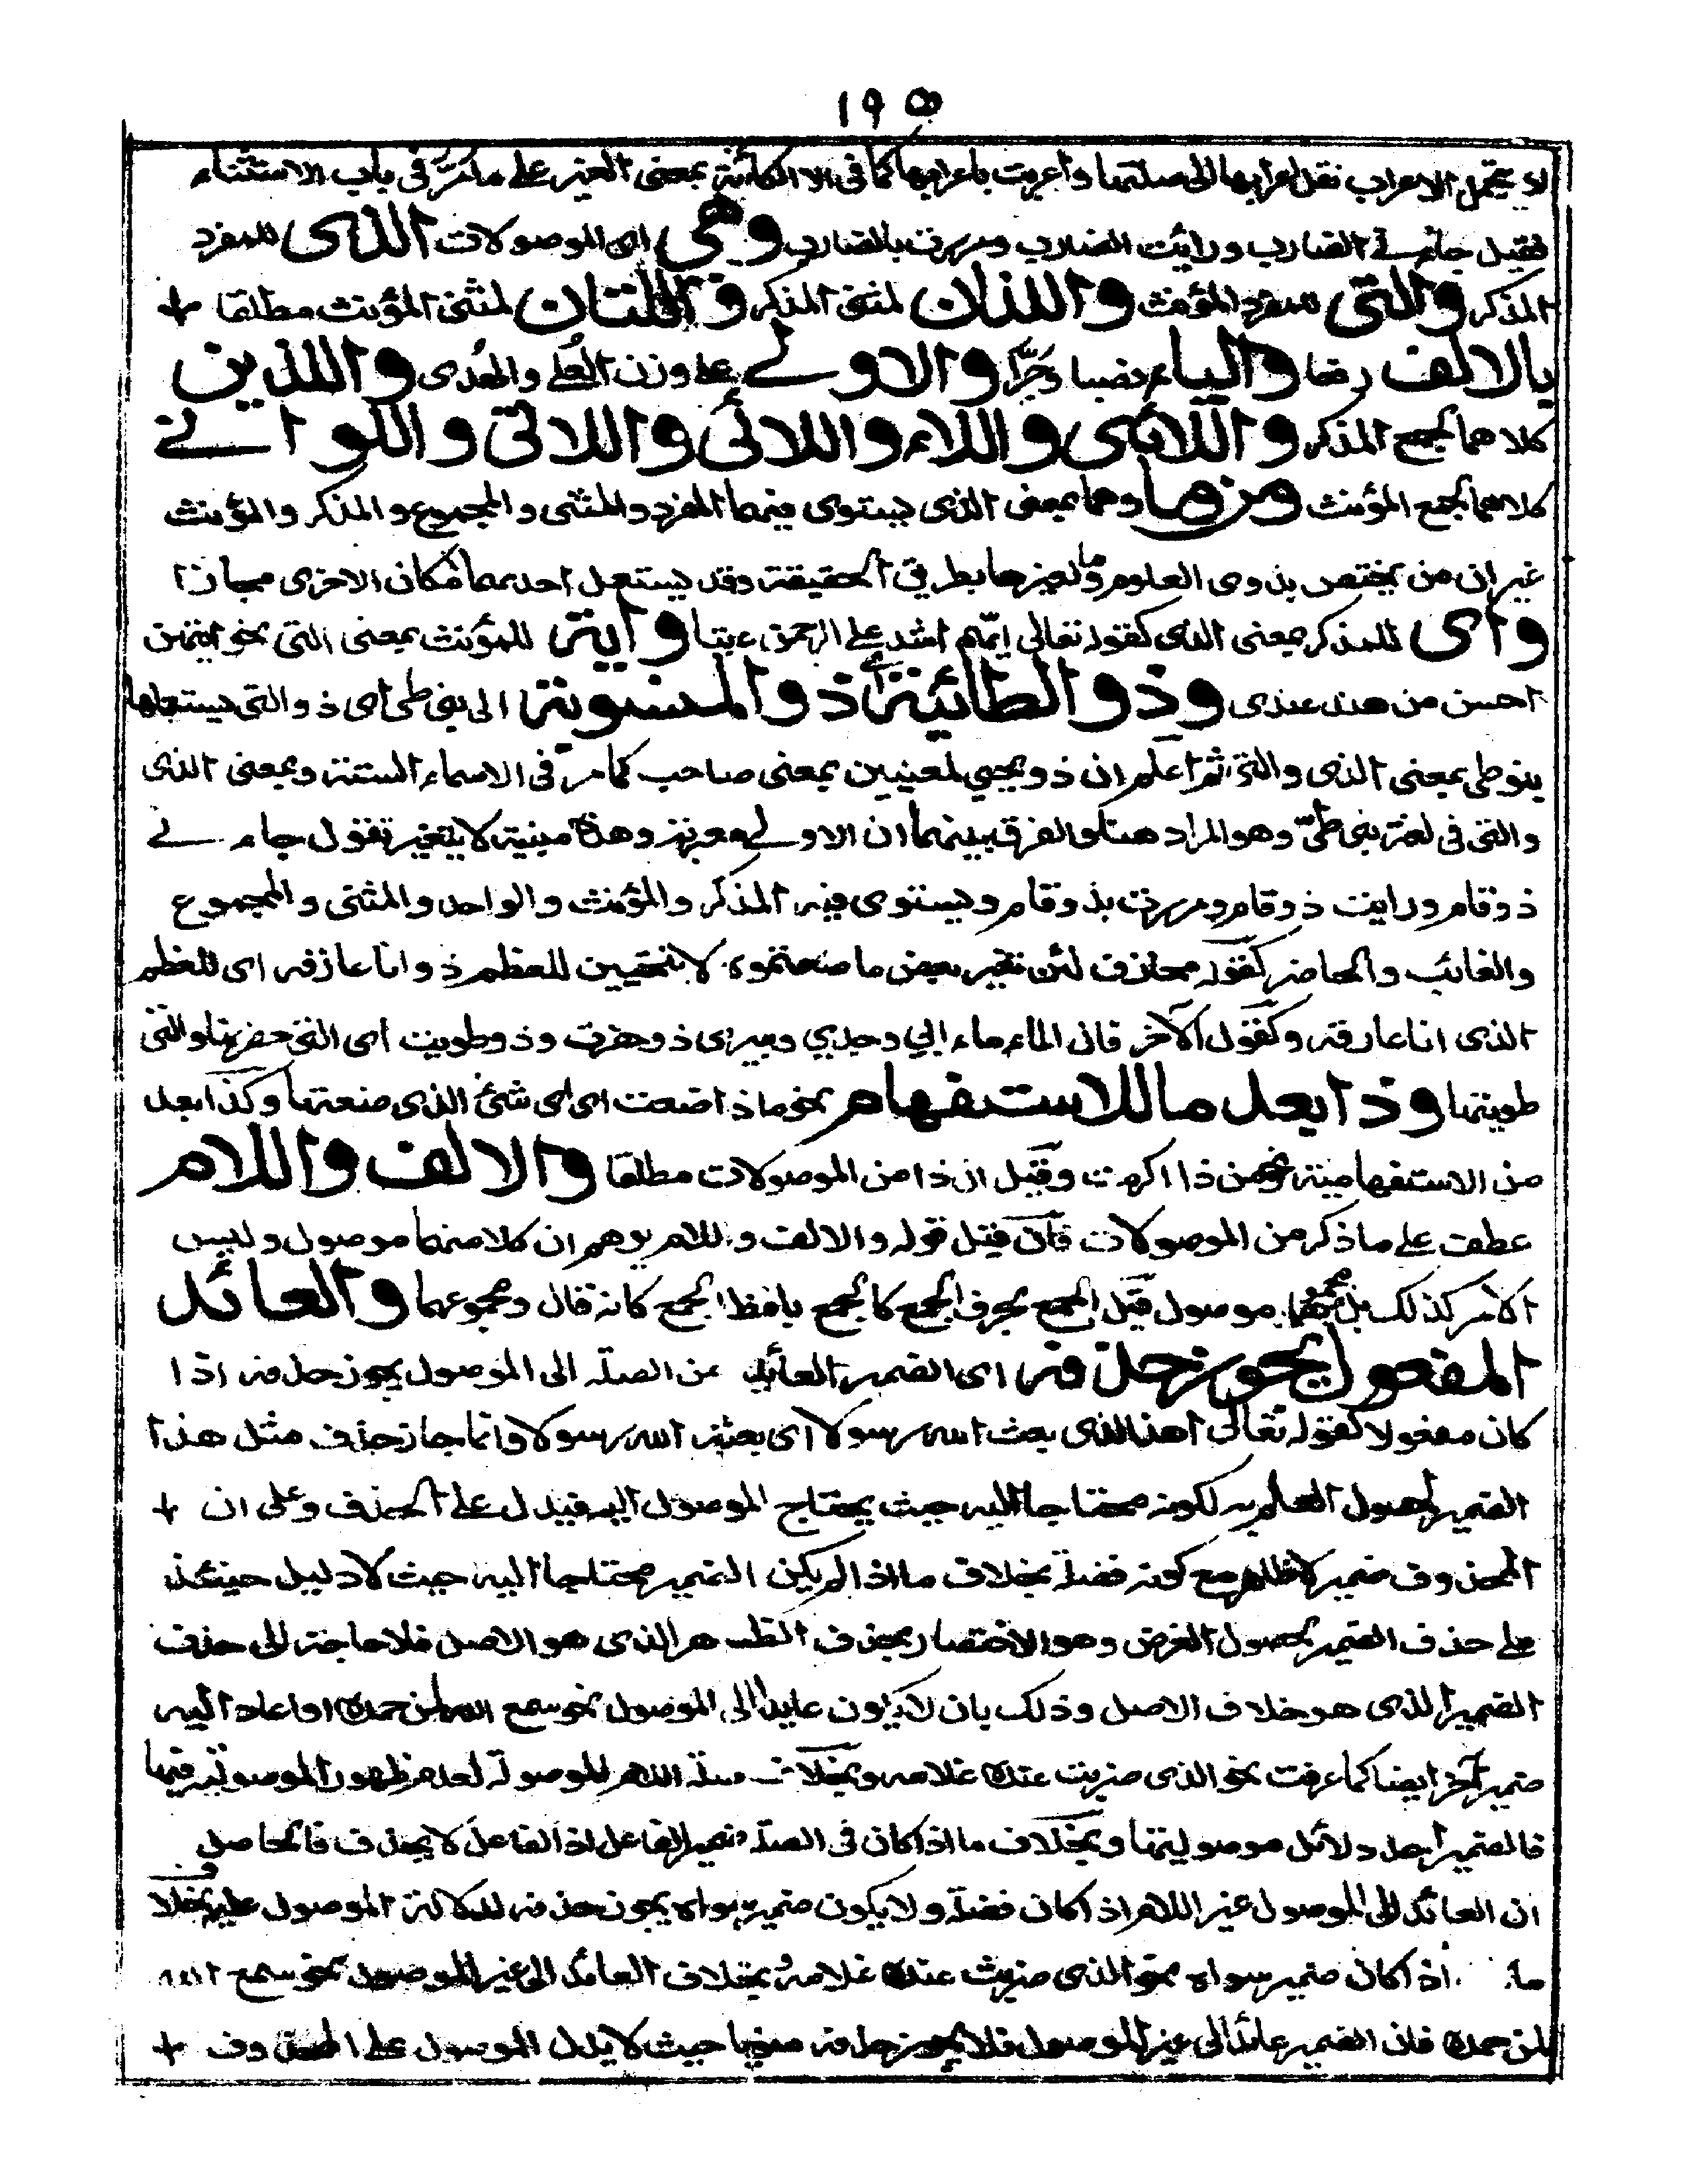 ١٩٥
لا يحتمل الاعراب نقل اعرابها الى صلتها واعربت باعرابها كما فى الا الكائنة بمعنى الغير على ما مرّ فى باب الاستثناء
فقيل جاءنى الضارب ورائيت الضارب ومررت بالضارب وهى اى الموصولات الذى للمفرد
المذكر والتى للمفرد المؤنث واللذان لمثنى المذكر واللتان لمثنى المؤنث مطلقا +
بالالف رفعا والياء نصبا وجرّا والاولى على وزن العُلى والهُدى واللذين
كلاهما لجمع المذكر واللائى واللاء واللائى واللاتى واللواتى
كلاهما لجمع المؤنث ومن وما وهما بمعنى الذى يستوى فيهما المفرد والمثنى والمجموع والمذكر والمؤنث
غير ان من يختص بذوى العلوم وما لغيرها بطريق الحقيقة وقد يستعمل احدهما مكان الاخرى مجازا
واى للمذكر بمعنى الذى كقوله تعالى ايّهم اشد على الرحمن عتيا واية للمؤنث بمعنى التى نحو ايتهن
احسن من هند عندى وذو الطائية اى ذو المنسوبة الى بنى طى اى ذو التى يستعملها
بنو طى بمعنى الذى والتى ثم اعلم ان ذو يجيئ لمعنيين بمعنى صاحب كما مرّ فى الاسماء الستة وبمعنى الذى
والتى فى لغة بنى طىّ وهو المراد هنا والفرق بينهما ان الاولى معربة وهذه مبنية لا يتغير تقول جاءنى
ذو قام ورايت ذو قام ومررت بذو قام ويستوى فيه المذكر والمؤنث والواحد والمثنى والمجموع
والغائب والحاضر كقوله لئن تغير بعض ما صنعتموه لانتحيين للعظم ذو انا عارقه اى للعظم
الذى انا عارقه وكقول الآخر فان الماء ماء ابي وجدي وبيرى ذو حفرت وذو طويت اى التى حفرتها والتى
طويتها وذا بعد ما للاستفهام نحو ماذا صنعت اى اى شئ الذى صنعته وكذا بعد
من الاستفهامية نحو من ذا اكرمت وقيل ان ذا من الموصولات مطلقا والالف واللام
عطف على ما ذكر من الموصولات فان قيل قوله والالف واللام يوهم ان كلا منهما موصول وليس
الامر كذلك بل مجموعهما موصول قيل الجمع بحرف الجمع كالجمع بلفظ الجمع كانه قال ومجموعهما والعائد
المفعول يجوز حذفه اى الضمير العائد من الصلة الى الموصول يجوز حذفه اذا
كان مفعولا كقوله تعالى اهذا الذى بعث الله رسولا اى بعثه الله رسولا وانما جاز حذف مثل هذا
الضمير لحصول العلم به لكونه محتاجا اليه حيث يحتاج الموصول اليه فيدل على الحذف وعلى ان +
المحذوف ضمير لا ظاهر مع كونه فضلة بخلاف ما اذا لم يكن الضمير محتاجا اليه حيث لا دليل حينئذ
على حذف الضمير لحصول الغرض وهو الاختصار بحذف الظاهر الذى هو الاصل فلا حاجة الى حذف
الضمير الذى هو خلاف الاصل وذلك بان لا يكون عايدا الى الموصول نحو سمع الله لمن حمده او اعاد اليه
ضمير آخر ايضا كما عرفت نحو الذى ضربت عنده غلامه وبخلاف صلة اللام الموصولة لعدم ظهور الموصولية فيها
فالضمير احد دلائل موصوليتها وبخلاف ما اذا كان فى الصلة ضمير الفاعل اذ الفاعل لا يحذف فالحاصل
ان العائد الى الموصول غير اللام اذا كان فضلة ولا يكون ضمير سواه يجوز حذفه لدلالة الموصول عليه بخلاف
ما اذا كان ضمير سواه نحو الذى ضربت عنده غلامه بخلاف العائد الى غير الموصول نحو سمع الله
لمن حمده فان الضمير عائد الى غير الموصول فلا يجوز حذفه منويا حيث لا يدل الموصول على المحذوف +